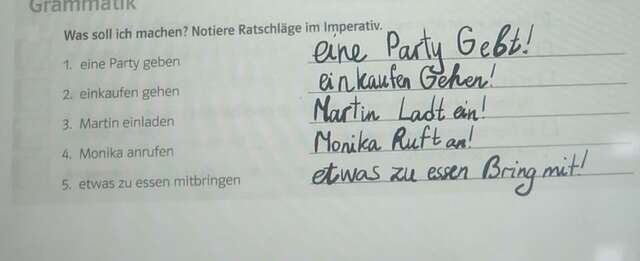 Grammatik
Was soll ich machen? Notiere Ratschläge im Imperativ.
1. eine Party geben eine Party Gebt!
2. einkaufen gehen einkaufen Gehen!
3. Martin einladen Martin Ladt ein!
4. Monika anrufen Monika Ruft an!
5. etwas zu essen mitbringen etwas zu essen Bring mit!